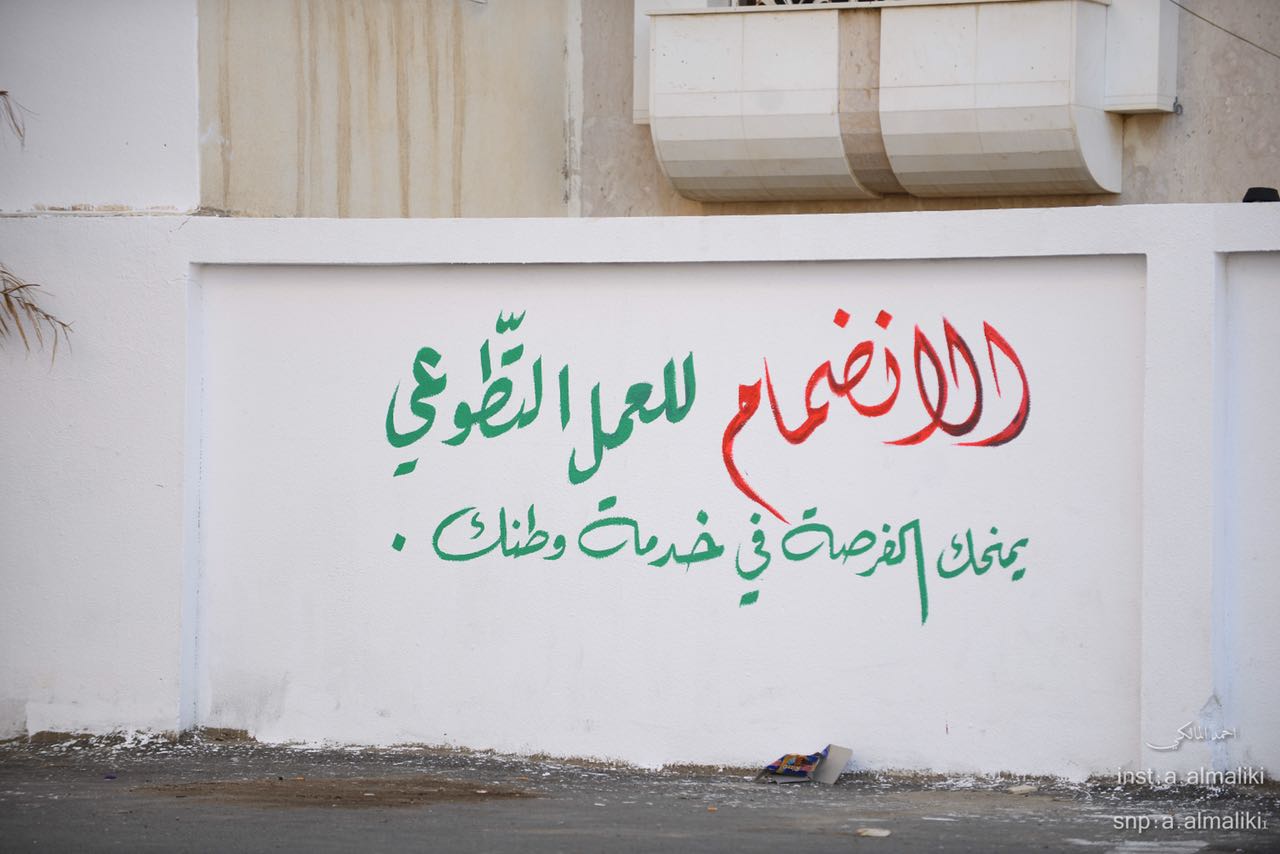 الانضمام للعمل التطّوعي
يمنحك الفرصة في خدمة وطنك .
احمد المالكي
inst:a.almaliki
snp:a.almaliki1